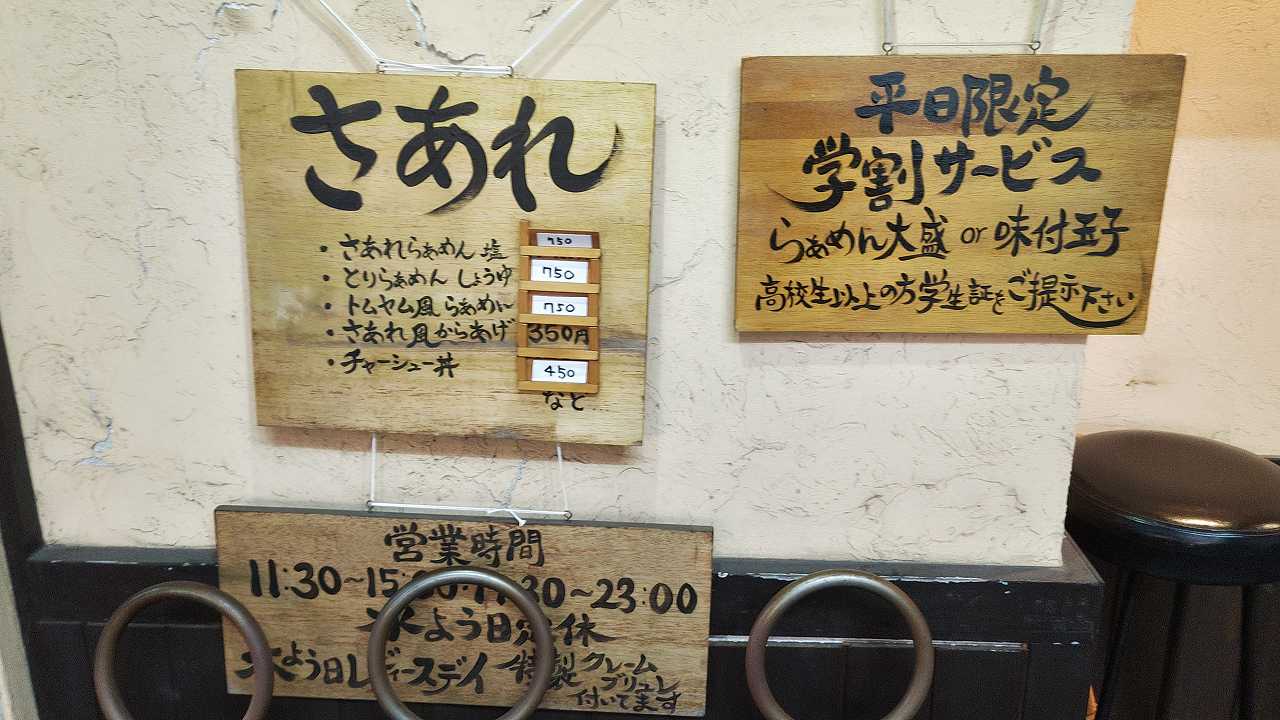 さあれ
・さあれらぁめん 塩 750
・とりらぁめん しょうゆ 750
・トムヤム風 らぁめん 750
・さあれ風からあげ 350円
・チャーシュー丼 450
など
平日限定
学割サービス
らぁめん大盛 or 味付玉子
高校生以上の方学生証をご提示下さい
営業時間
11:30~15:00 ~23:00
よう日定休
よう日レディースデイ 特製クレーム
ブリュレ
付いてます